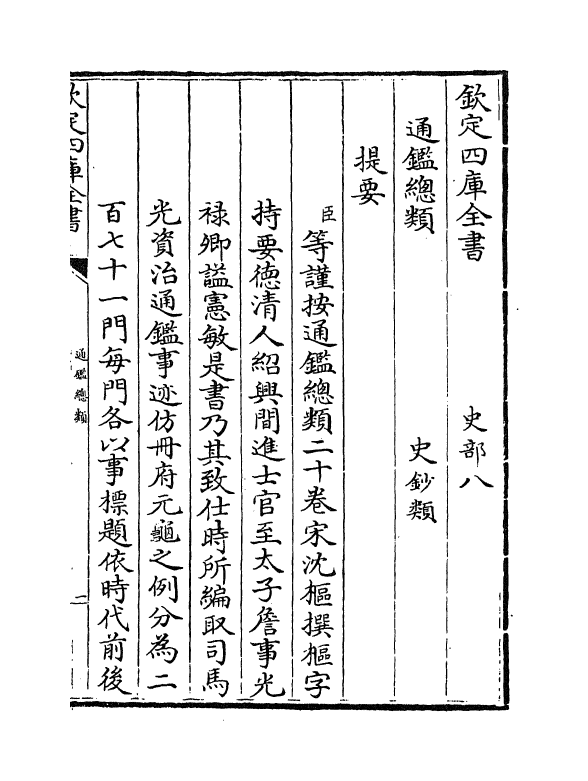 欽定四庫全書　史部八
通鑑總類　史鈔類
提要
臣等謹按通鑑總類二十卷宋沈樞撰樞字
持要德清人紹興間進士官至太子詹事光
禄卿謚憲敏是書乃其致仕時所編取司馬
光資治通鑑事迹仿冊府元龜之例分為二
百七十一門每門各以事標題依時代前後
欽定四庫全書
通鑑總類